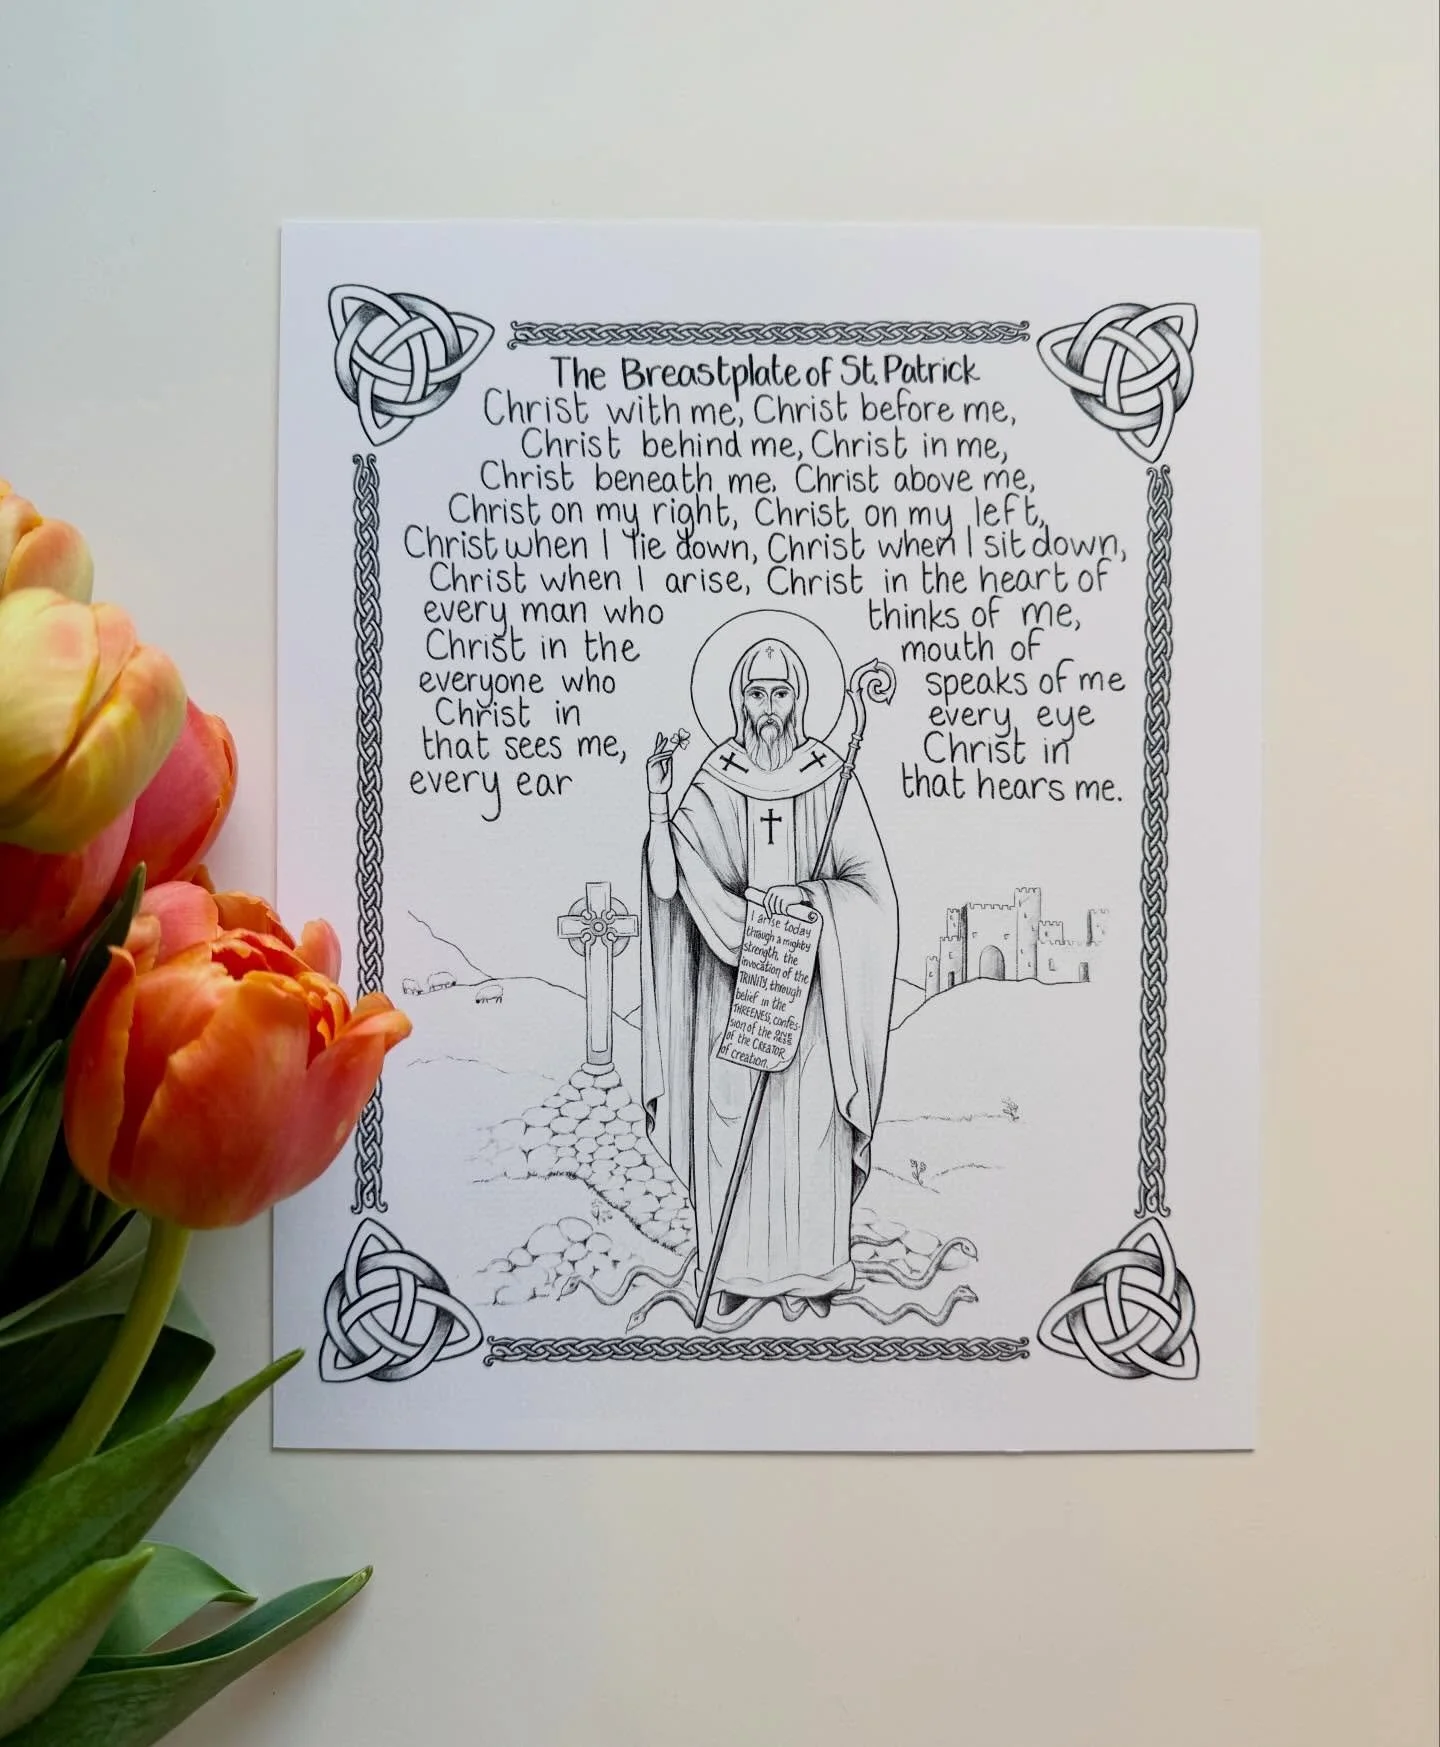 The Breastplate of St. Patrick
Christ with me, Christ before me,
Christ behind me, Christ in me,
Christ beneath me. Christ above me,
Christ on my right, Christ on my left,
Christ when I lie down, Christ when I sit down,
Christ when I arise, Christ in the heart of
every man who thinks of me,
Christ in the mouth of
everyone who speaks of me
Christ in every eye
that sees me, Christ in
every ear that hears me.
I arise today
through a mighty
strength, the
invocation of the
TRINITY, through
belief in the
THREENESS, confes-
sion of the ONENESS
of the CREATOR
of creation.